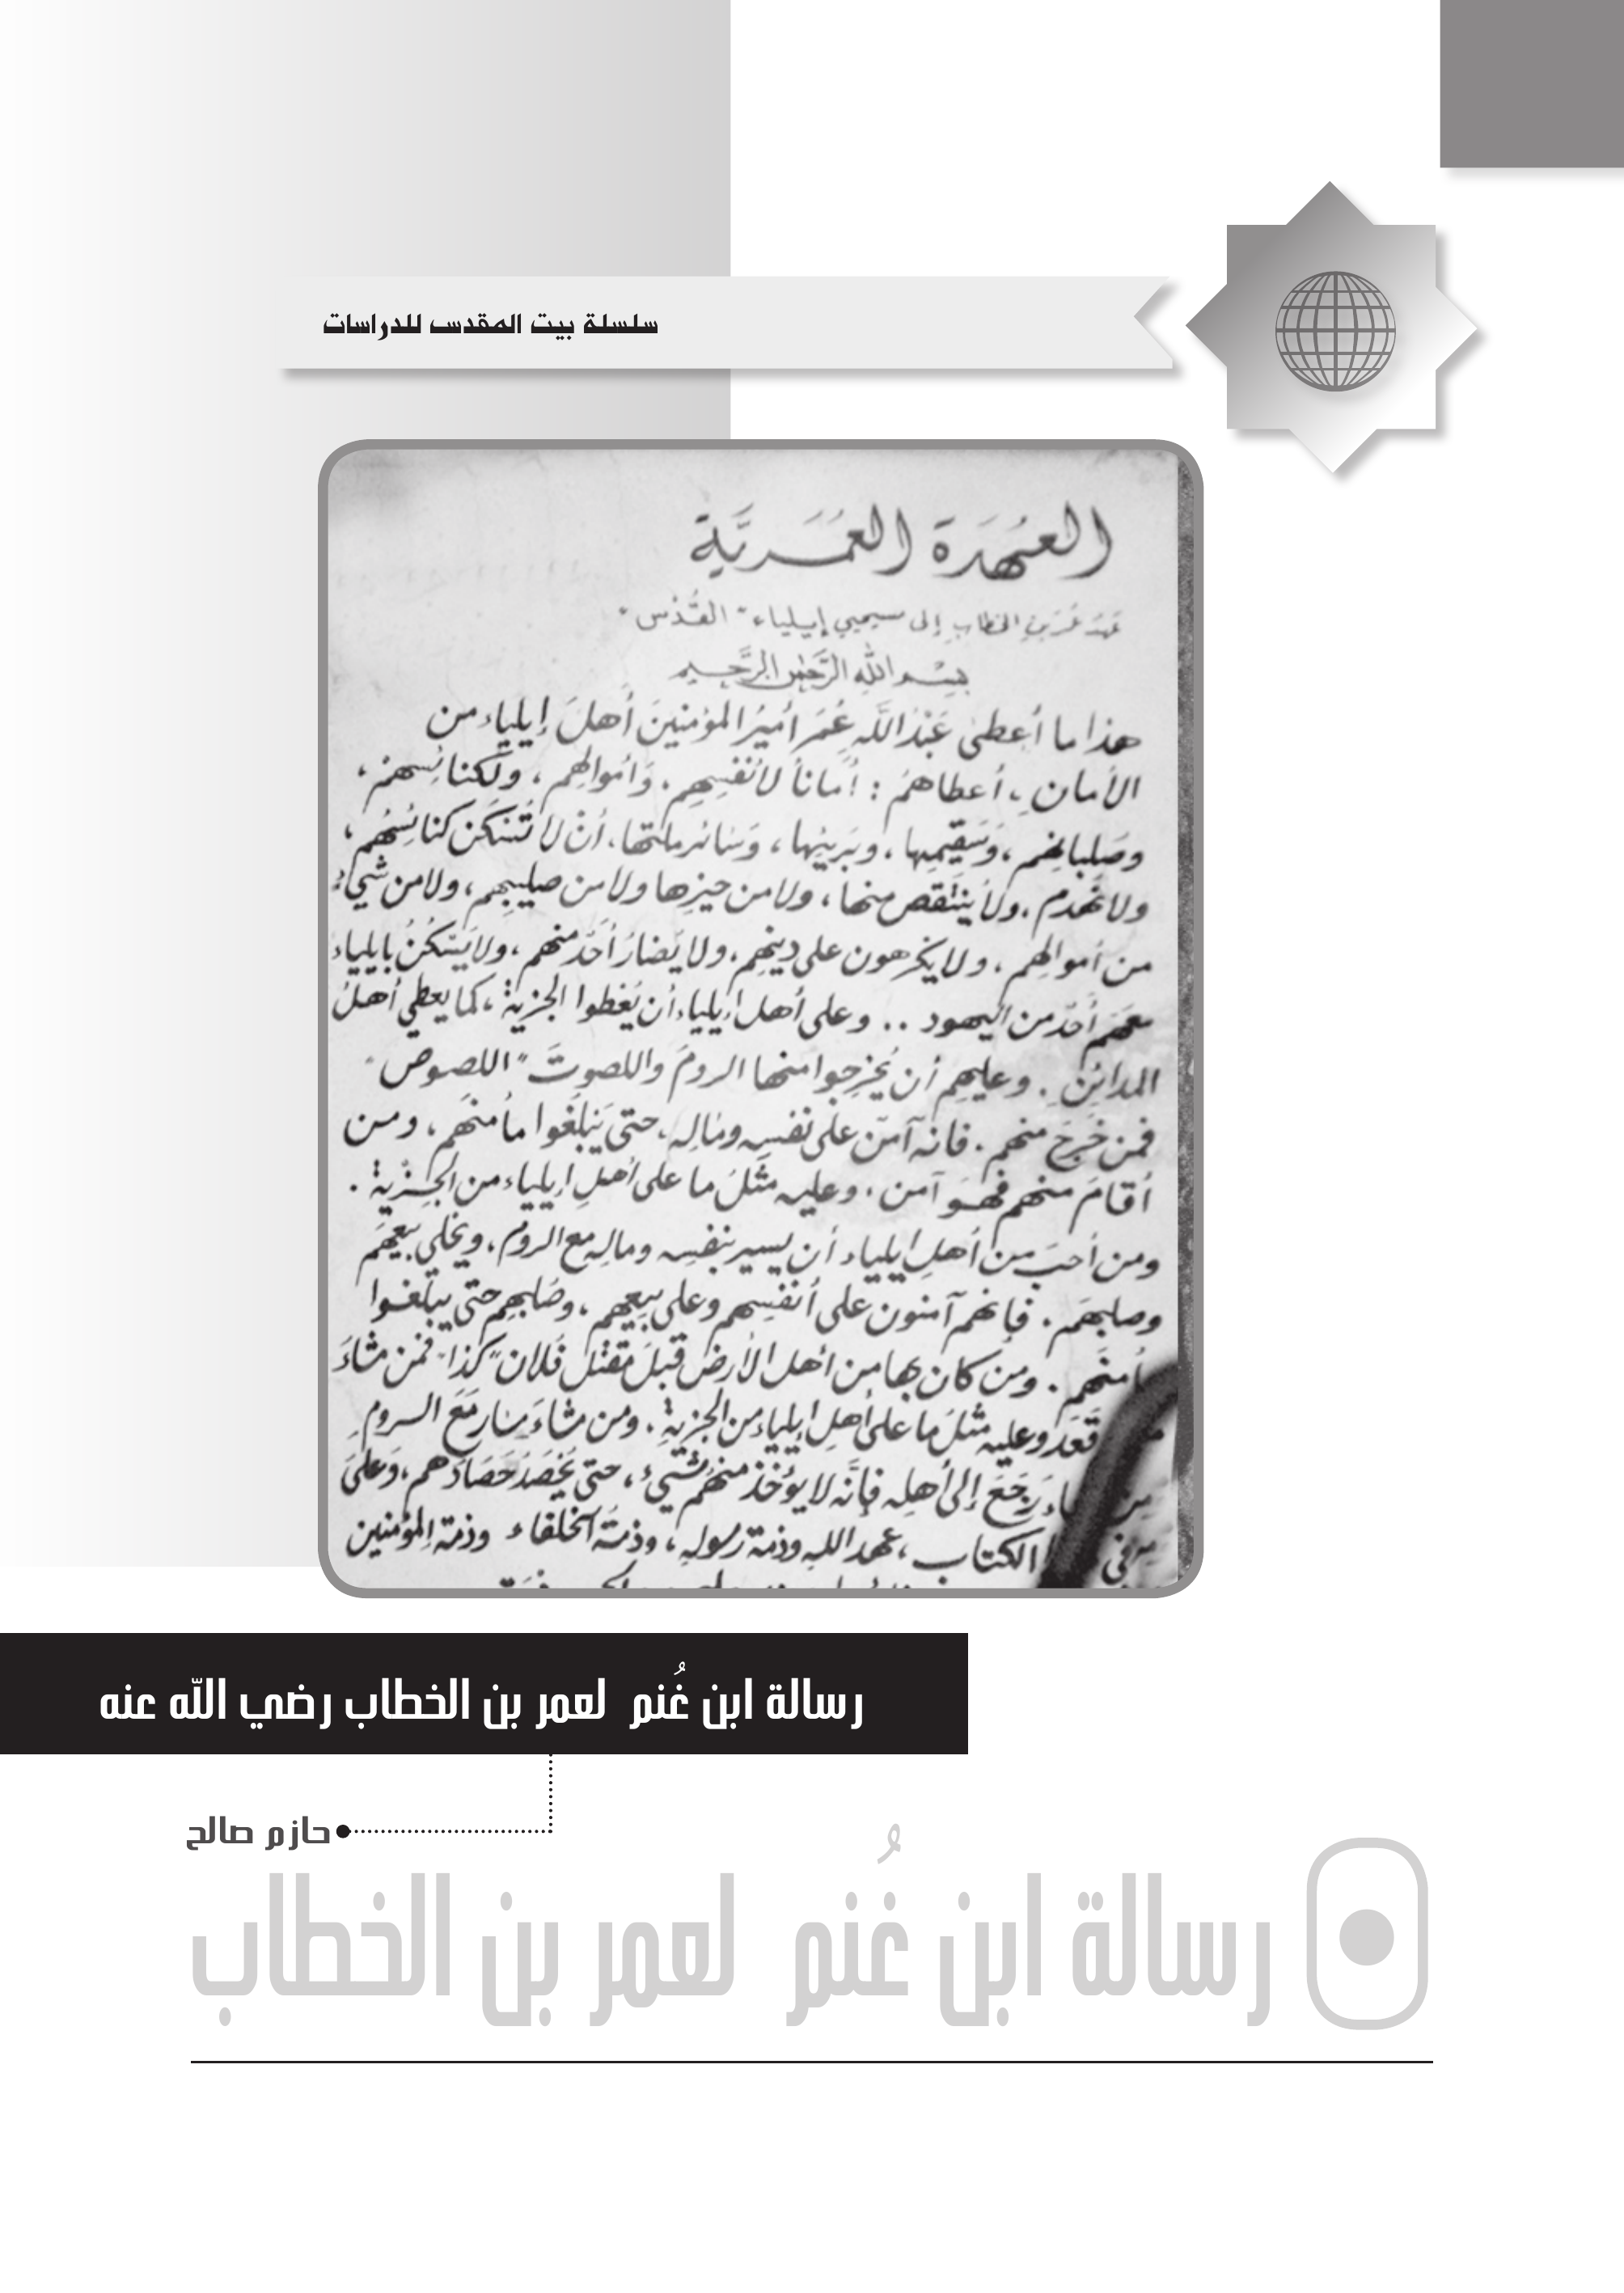 سلسلة بيت المقدس للدراسات
العُهدَة العُمَريَّة
عَهدُ عُمَرَ بنِ الخطابِ إلى مسيحيي إيلياء " القُدْس "
بِسْم اللهِ الرَّحمٰنِ الرَّحيم
هذا ما أعطى عَبْدُ اللَّهِ عُمَرَ أميرُ المؤمنينَ أهلَ إيلياء من
الأمانِ، أعطاهمُ : أماناً لأنفُسِهِم، وَأموالِهِم، ولكنائِسهمْ،
وصَلبانِهم، وَسَقيمِها، وبَريئِها، وَسَائر ملتها، أنْ لا تُسْكَن كنائِسُهُم،
ولا تُهدم، ولا يُنْتَقَص منها، ولا من حيزِها ولا من صليبِهم، ولا من شيءٍ
من أموالِهِم، ولا يُكْرَهون على دينِهِم، ولا يُضارُ أحَدٌ منهم، ولا يَسْكُنُ بايلياء
معهم أحَدٌ من اليهود .. وعلى أهل إيلياء أن يُعْطوا الجزيةَ، كما يعطي أهلُ
المدائِنِ. وعليهِم أن يُخرِجوا منها الرومَ واللصوتَ "اللصوص"
فمن خَرَجَ منهم. فإنه آمنٌ على نفسِهِ ومَالِهِ، حتى يَبلُغوا مأمنَهم، ومن
أقامَ منهم فهو آمن، وعليه مثلَ ما على أهلِ إيلياء من الجِزيةِ.
ومن أحبَ من أهلِ إيلياء أن يسير بنفسِه ومالِهِ مع الروم، ويخلي بيعهَم
وصلبهَم. فإنهم آمنون على أنفسِهم وعلى بيعِهِم، وصُلبِهِم حتى يبلغوا
مأمنَهم. ومن كان بها من أهل الأرضِ قبلَ مقتل فلان "كذا" فمن شاءَ
قَعَدَ وعليه مثلَ ما على أهلِ إيلياء من الجزيةِ. ومن شاءَ سَار مَعَ الرومِ
رَجَعَ إلى أهلِهِ فإنَّه لا يؤخذ منهُم شيءٌ، حتى يُحْصَدُ حَصَادَهم، وَعلى
الكتابِ، عهد الله وذمة رَسولهِ، وذمَةُ الخلفاءِ وذمة المؤمنين
رسالة ابن غُنم لعمر بن الخطاب رضي الله عنه
حازم صالح
رسالة ابن غُنم لعمر بن الخطاب